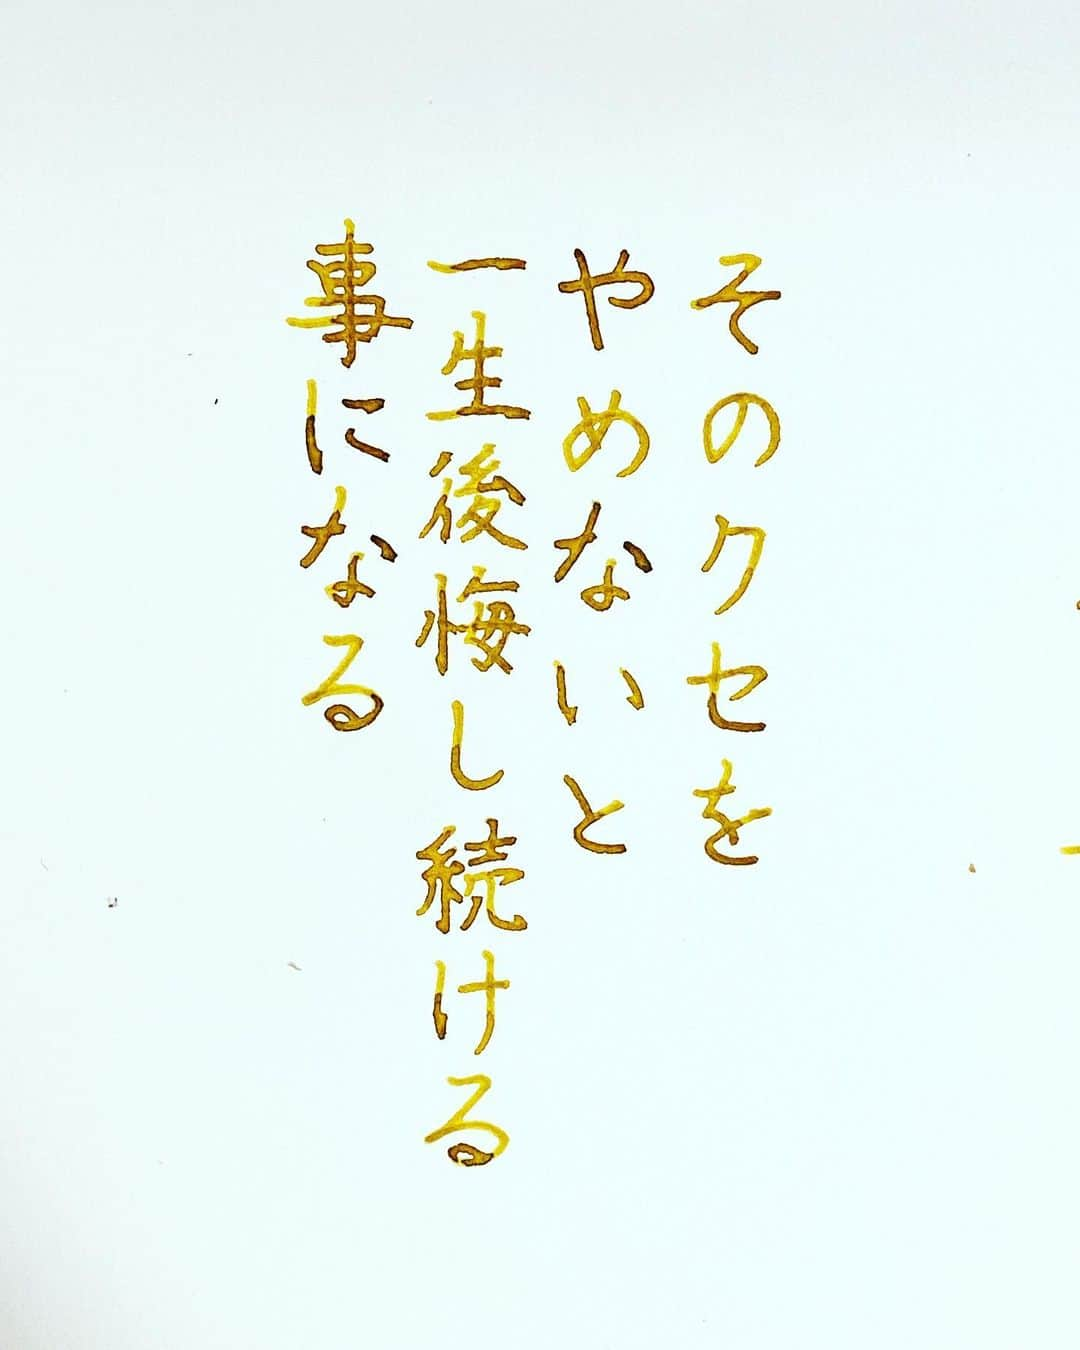 そのクセを
やめないと
一生後悔し続ける
事になる